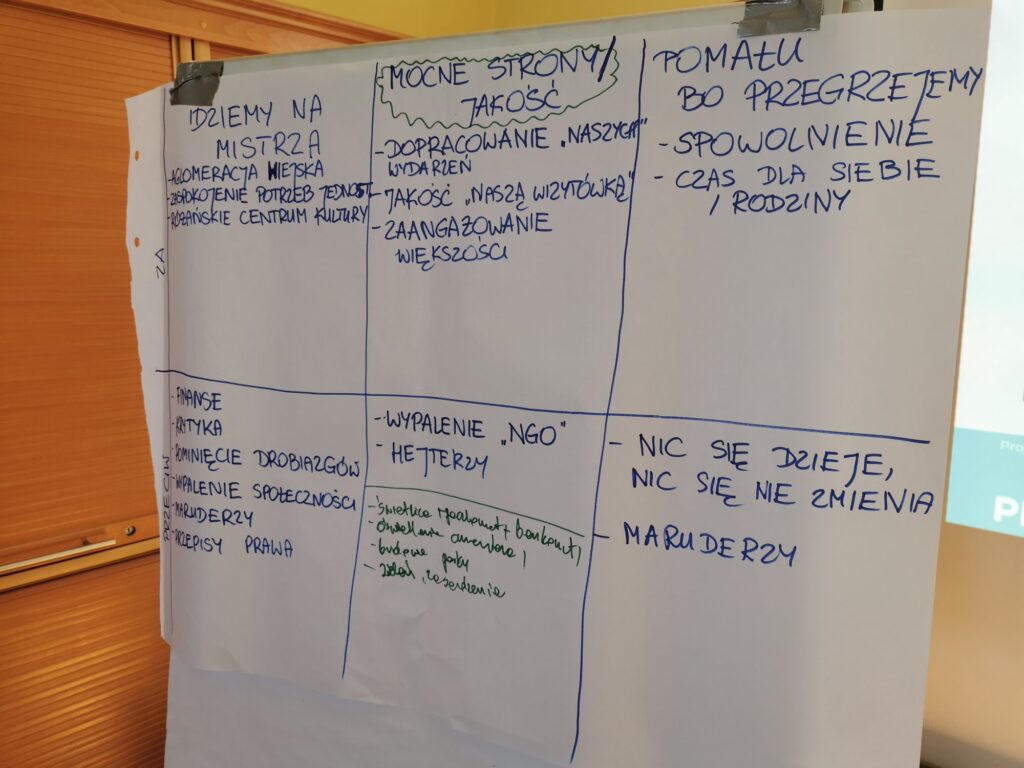 IDZIEMY NA
MISTRZA
- AGLOMERACJA WIEJSKA
- ZASPOKOJENIE POTRZEB JEDNOST.
- ROZAŃSKIE CENTRUM KULTURY
MOCNE STRONY/
JAKOŚĆ
- DOPRACOWANIE „NASZYCH"
WYDARZEŃ
- JAKOŚĆ „NASZĄ WIZYTÓWKĄ"
- ZAANGAŻOWANIE
WIĘKSZOŚCI
POMAŁU
BO PRZEGRZEJEMY
- SPOWOLNIENIE
- CZAS DLA SIEBIE
I RODZINY
ZA
PRZECIW
- FINANSE
- KRYTYKA
- POMINIĘCIE DROBIAZGÓW
- WYPALENIE SPOŁECZNOŚCI
- MARUDERZY
- PRZEPISY PRAWA
- WYPALENIE „NGO"
- HEJTERZY
- świetlica
- oświetlenie
- budowa
- NIC SIĘ DZIEJE,
NIC SIĘ NIE ZMIENIA
- MARUDERZY